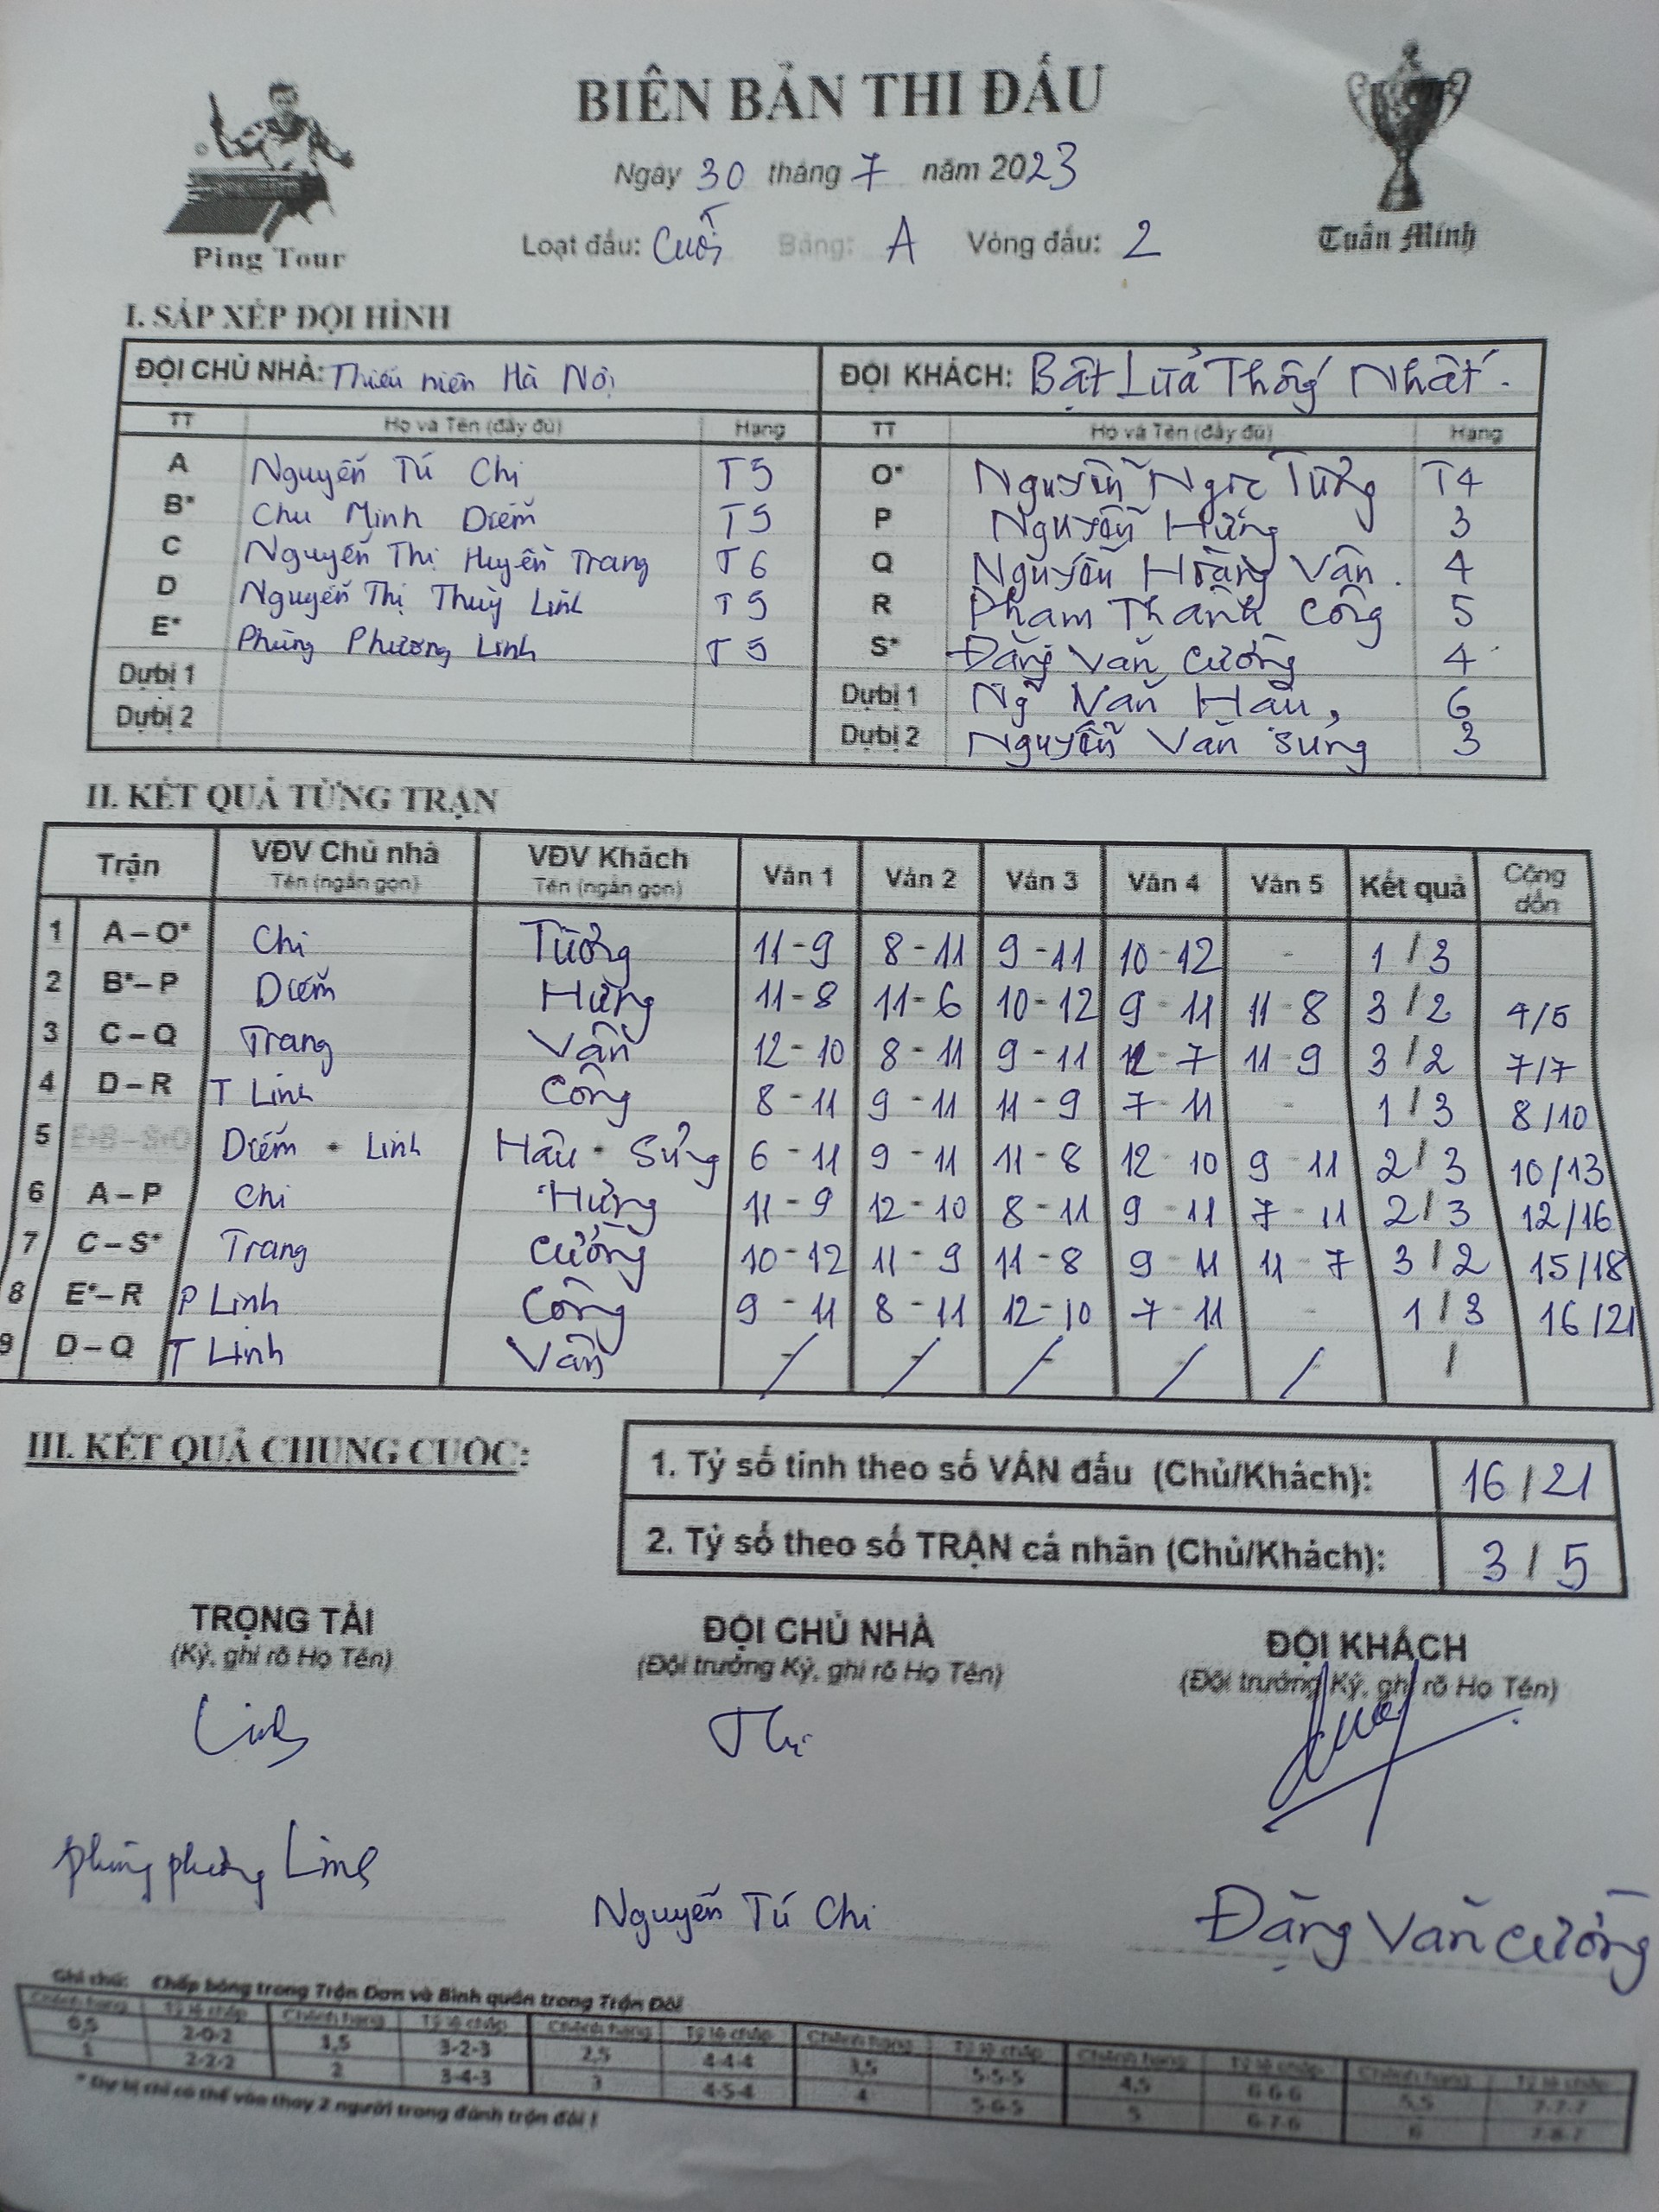 BIÊN BẢN THI ĐẤU
Ngày 30 tháng 7 năm 2023
Loạt đấu: Cuối Bảng: A Vòng đấu: 2
Ping Tour
Tuấn Minh
I. SẮP XẾP ĐỘI HÌNH
ĐỘI CHỦ NHÀ: Thiếu niên Hà Nội ĐỘI KHÁCH: Bật Lửa Thống Nhất.
TT Họ và Tên (đầy đủ) Hạng TT Họ và Tên (đầy đủ) Hạng
A Nguyễn Tú Chi T5 O* Nguyễn Ngọc Tưởng T4
B* Chu Minh Diễm T5 P Nguyễn Hưng 3
C Nguyễn Thị Huyền Trang T6 Q Nguyễn Hoàng Vân. 4
D Nguyễn Thị Thuỳ Linh T5 R Phạm Thanh Công 5
E* Phùng Phương Linh T5 S* Đặng Văn Cường 4
Dự bị 1 Dự bị 1 Ng Văn Hậu, 6
Dự bị 2 Dự bị 2 Nguyễn Văn 3
II. KẾT QUẢ TỪNG TRẬN
Trận VĐV Chủ nhà Tên (ngắn gọn) VĐV Khách Tên (ngắn gọn) Ván 1 Ván 2 Ván 3 Ván 4 Ván 5 Kết quả Cộng dồn
1 A – O* Chi Tưởng 11 - 9 8 - 11 9 - 11 10 - 12 - 1 / 3
2 B* – P Diễm Hưng 11 - 8 11 - 6 10 - 12 9 - 11 11 - 8 3 / 2 4/5
3 C – Q Trang Vân 12 - 10 8 - 11 9 - 11 - 7 11 - 9 3 / 2 7/7
4 D – R T Linh Công 8 - 11 9 - 11 11 - 9 7 - 11 - 1 / 3 8/10
5 E+B – S+O Diễm - Linh Hậu - 6 - 11 9 - 11 11 - 8 12 - 10 9 - 11 2 / 3 10/13
6 A – P Chi Hưng 11 - 9 12 - 10 8 - 11 9 - 11 7 - 11 2 / 3 12/16
7 C – S* Trang Cường 10 - 12 11 - 9 11 - 8 9 - 11 11 - 7 3 / 2 15/18
8 E* – R P Linh Công 9 - 11 8 - 11 12 - 10 7 - 11 - 1 / 3 16/21
9 D – Q T Linh Vân - - - - - /
III. KẾT QUẢ CHUNG CUỘC:
1. Tỷ số tính theo số VÁN đấu (Chủ/Khách): 16 / 21
2. Tỷ số theo số TRẬN cá nhân (Chủ/Khách): 3 / 5
TRỌNG TÀI ĐỘI CHỦ NHÀ ĐỘI KHÁCH
(Ký, ghi rõ Họ Tên) (Đội trưởng Ký, ghi rõ Họ Tên) (Đội trưởng Ký, ghi rõ Họ Tên)
Linh
Phùng Phương Linh Nguyễn Tú Chi Đặng Văn Cường
Ghi chú: Chấp bóng trong Trận Đơn và Bình quân trong Trận Đôi
Chênh hạng Tỷ lệ chấp Chênh hạng Tỷ lệ chấp Chênh hạng Tỷ lệ chấp Chênh hạng Tỷ lệ chấp Chênh hạng Tỷ lệ chấp Chênh hạng Tỷ lệ chấp
0,5 2-0-2 1,5 3-2-3 2,5 4-4-4 3,5 5-5-5 4,5 6-6-6 5,5 7-7-7
1 2-2-2 2 3-4-3 3 4-5-4 4 5-6-5 5 6-7-6 6 7-8-7
* Dự bị chỉ có thể vào thay 2 người trong đánh trận đôi !